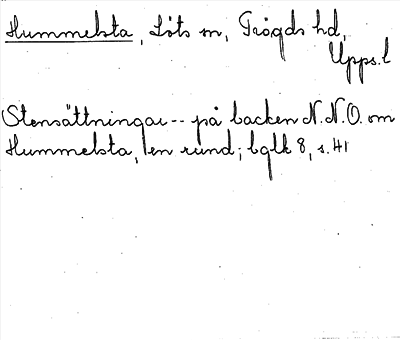 Hummelsta, Löts sn, Trögds hd,
Upps.l
Stensättningar -- på backen N.N.O. om
Hummelsta, en rund; bglk 8, s. 41